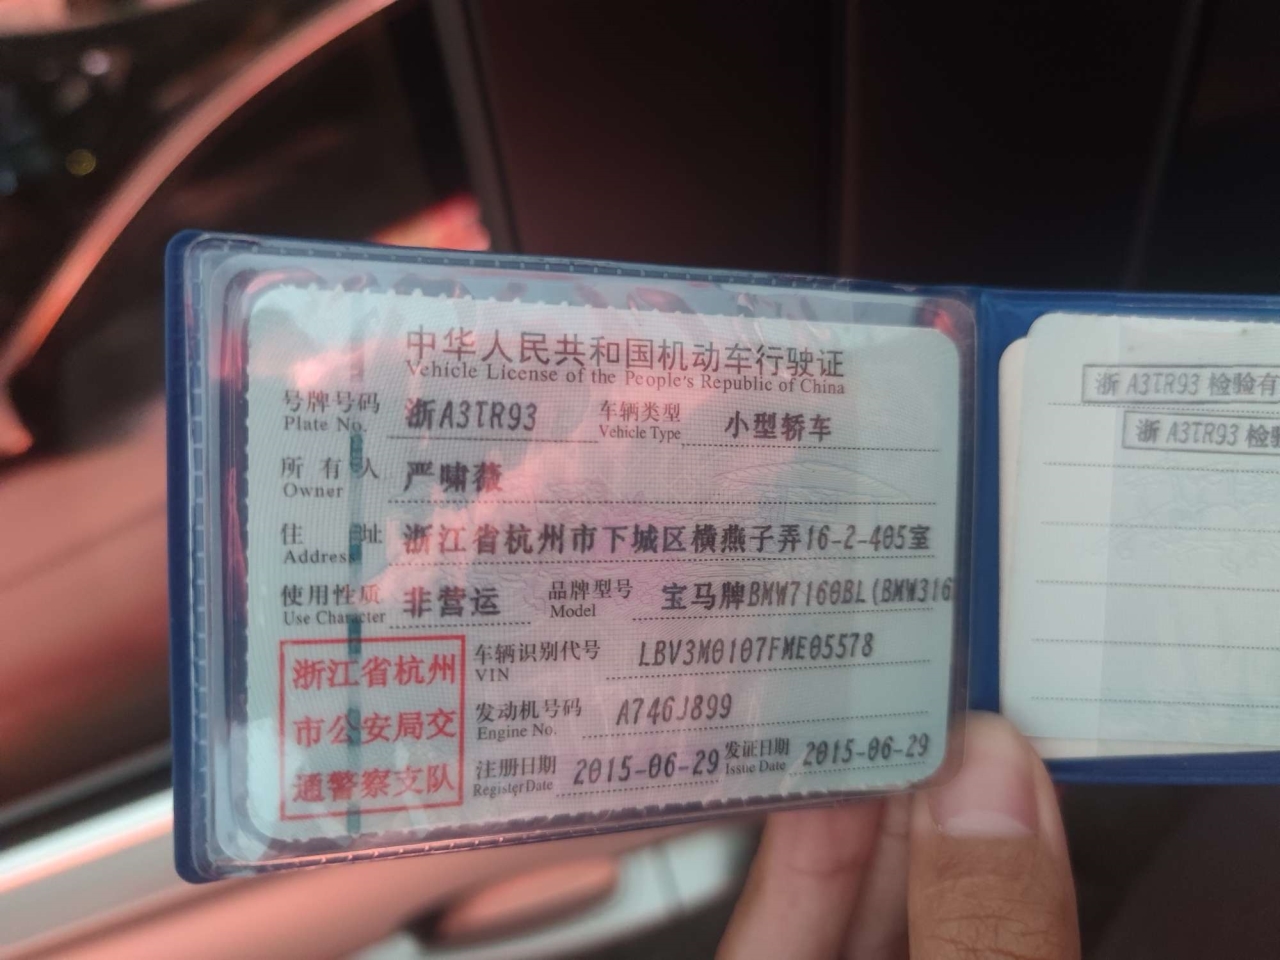 中华人民共和国机动车行驶证
Vehicle License of the People's Republic of China
号牌号码 浙A3TR93 车辆类型 小型轿车
Plate No. Vehicle Type
所有人 严啸薇
Owner
住址 浙江省杭州市下城区横燕子弄16-2-405室
Address
使用性质 非营运 品牌型号 宝马牌BMW7160BL(BMW316
Use Character Model
浙江省杭州
市公安局交
通警察支队
车辆识别代号 LBV3M0107FME05578
VIN
发动机号码 A746J899
Engine No.
注册日期 2015-06-29 发证日期 2015-06-29
Register Date Issue Date
浙A3TR93 检验有
浙A3TR93 检验